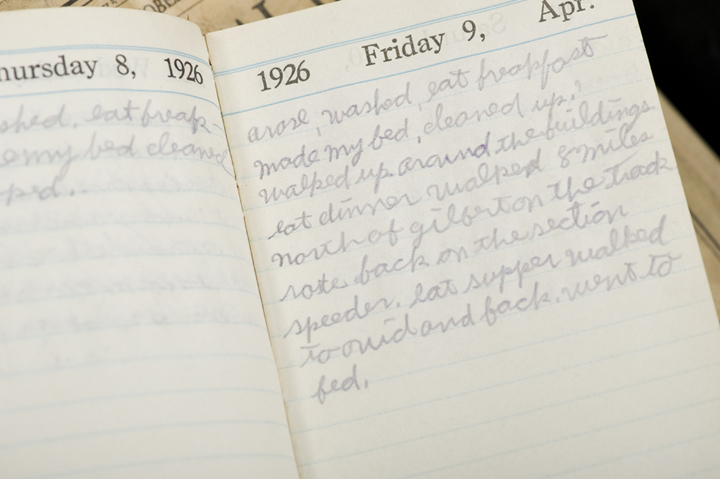 hursday 8, 1926
shed, eat freap-
my bed cleaned
ped.
1926 Friday 9, Apr.
arose, washed, eat freapfast
made my bed, cleaned up,
walped up around the buildings
eat dinner walped 8 miles
north of gilbert on the track
rote back on the section
speeder. eat supper walked
to ovid and back. went to
bed.